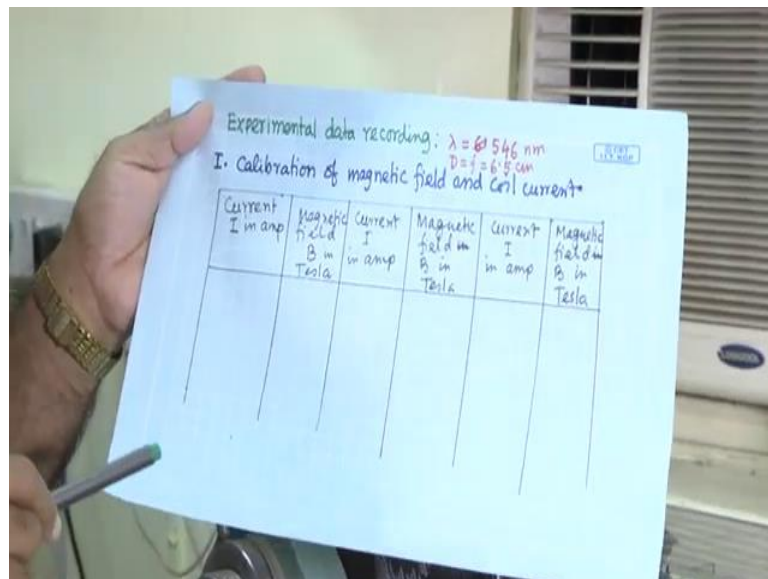 Experimental data recording: λ = 546 nm
D = f = 6.5 cm
I. Calibration of magnetic field and coil current
Current I in amp
Magnetic field B in Tesla
Current I in amp
Magnetic field B in Tesla
Current I in amp
Magnetic field B in Tesla